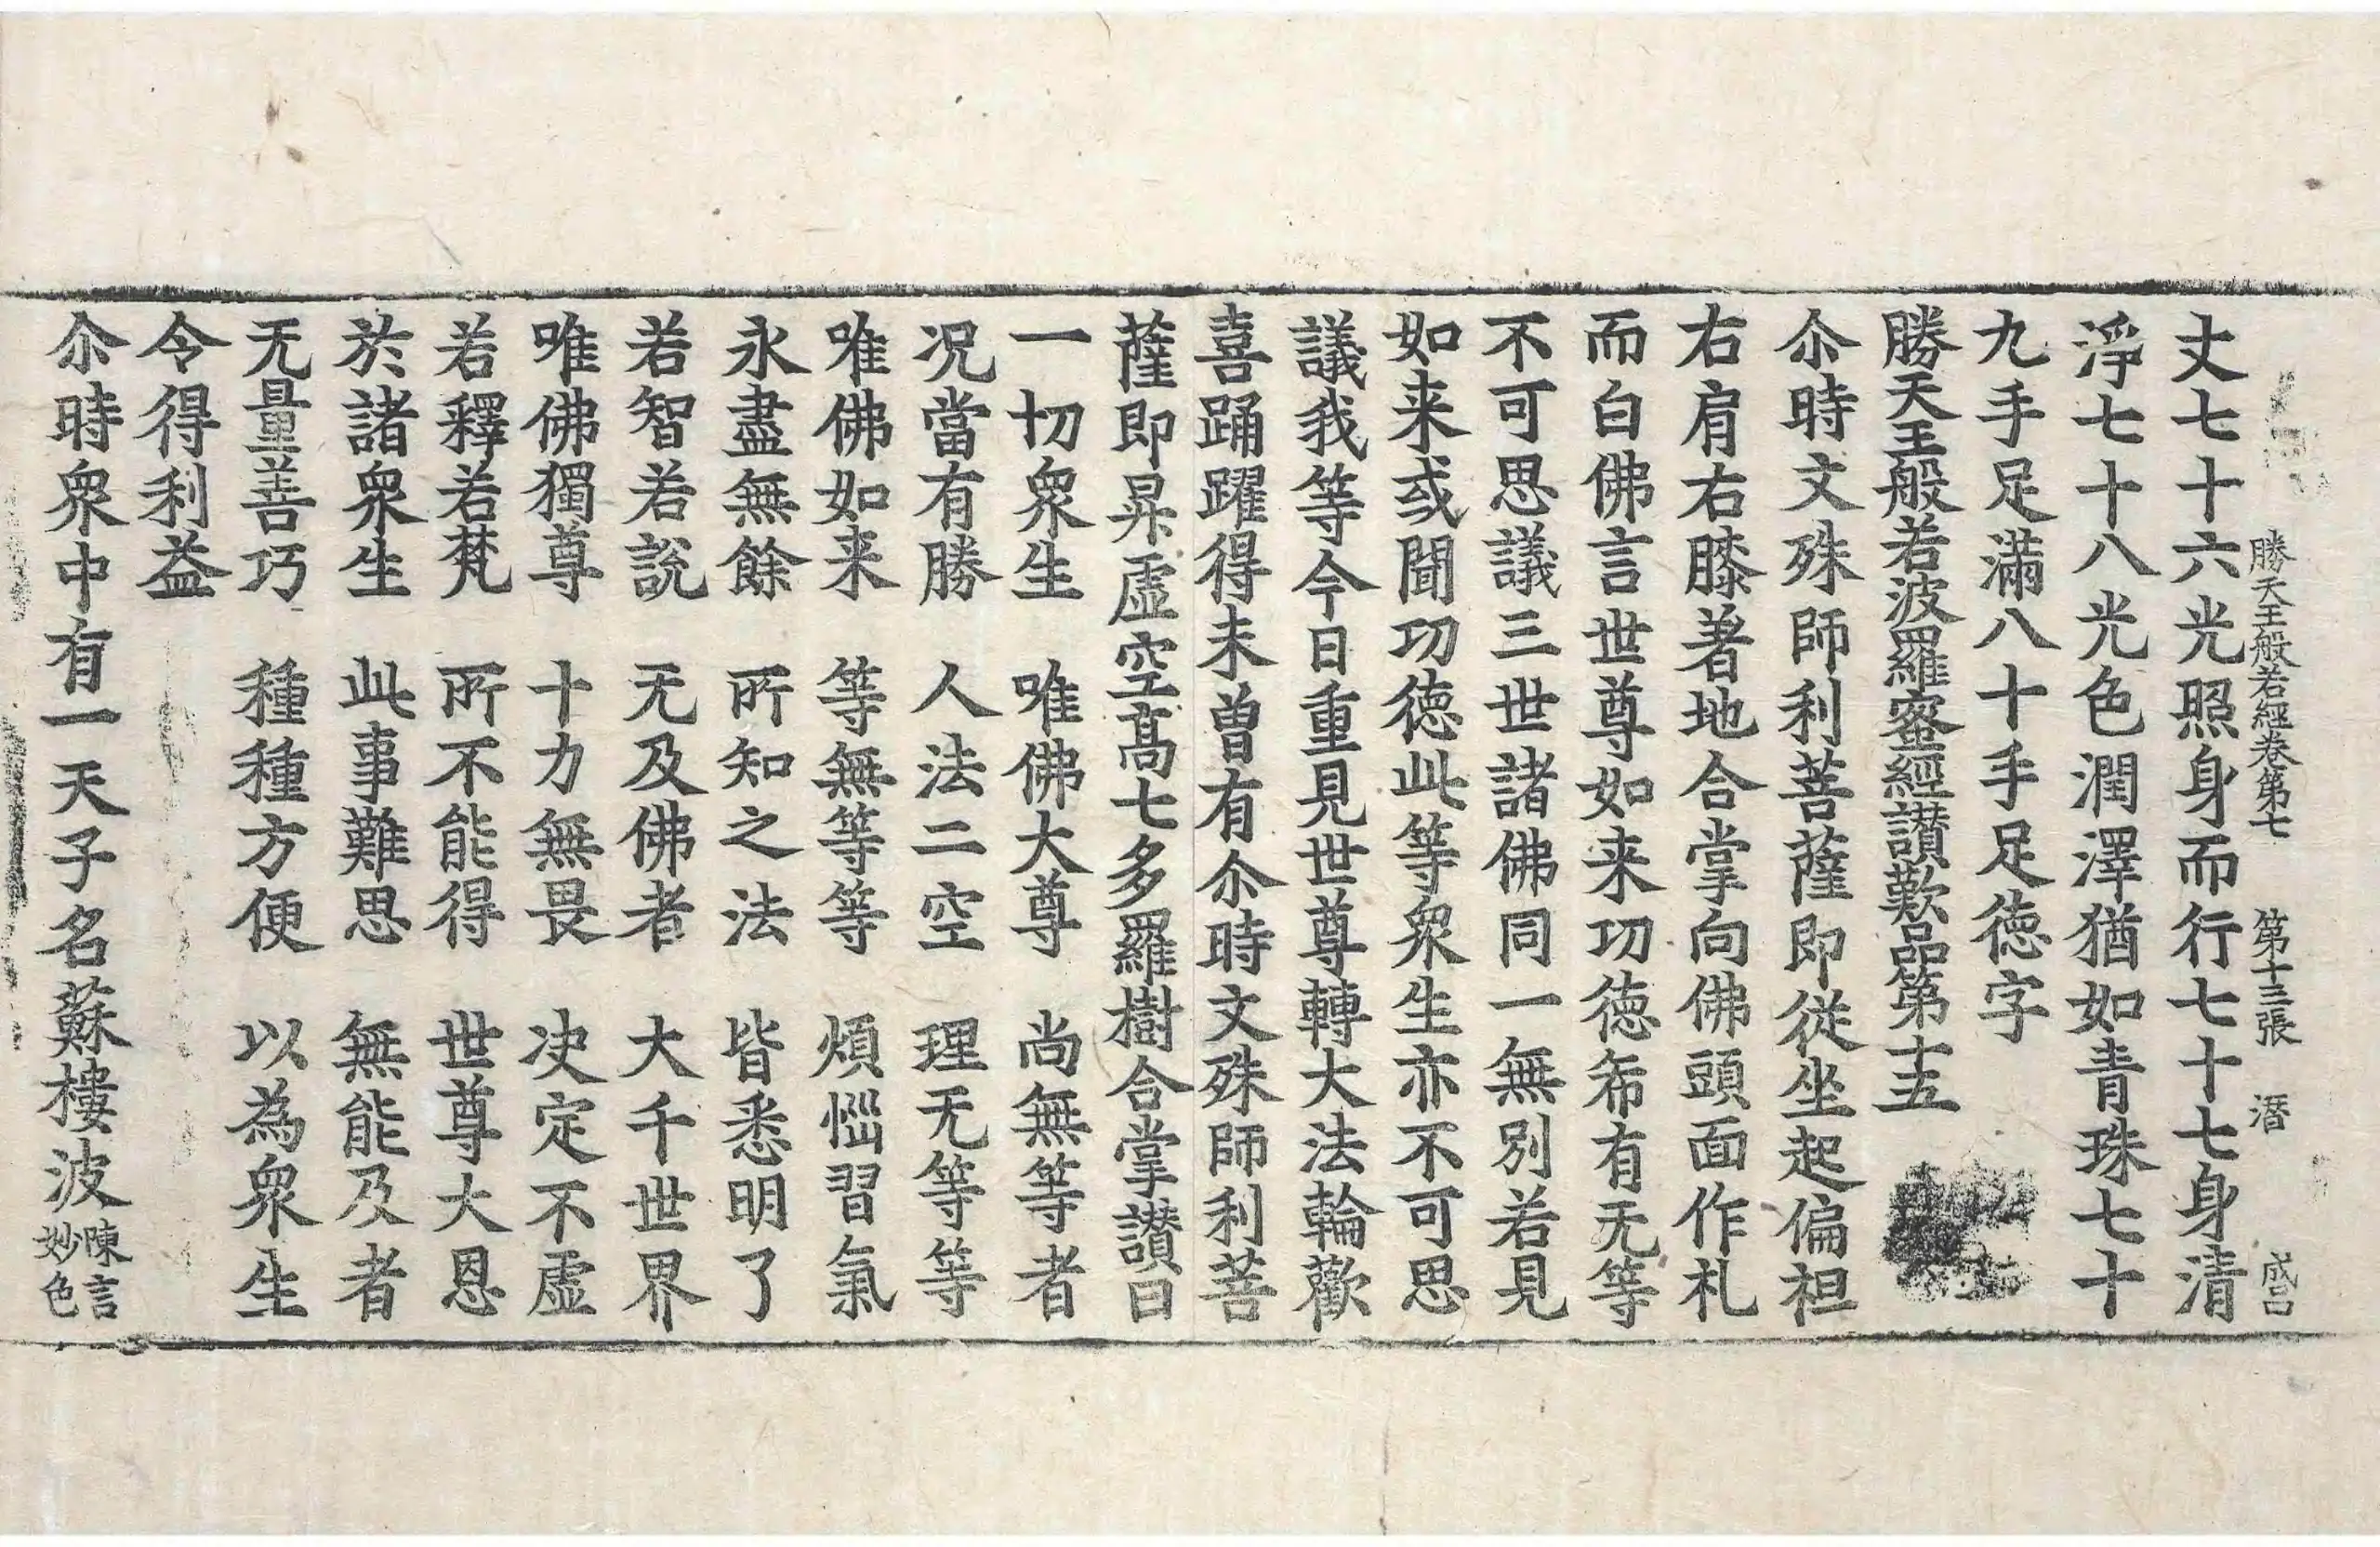 勝天王般若經卷第七 第十三張 潛 成吕
丈七十六光照身而行七十七身清
淨七十八光色潤澤猶如青珠七十
九手足滿八十手足徳字
勝天王般若波羅蜜經讃歎品第十五
尒時文殊師利菩薩即從坐起偏袒
右肩右膝著地合掌向佛頭面作礼
而白佛言世尊如来功徳希有无等
不可思議三世諸佛同一無別若見
如来或聞功徳此等衆生亦不可思
議我等今日重見世尊轉大法輪歡
喜踊躍得未曾有尒時文殊師利菩
薩即昇虛空高七多羅樹合掌讃曰
一切衆生 唯佛大尊 尚無等者
况當有勝 人法二空 理无等等
唯佛如来 等無等等 煩惱習氣
永盡無餘 所知之法 皆悉明了
若智若說 无及佛者 大千世界
唯佛獨尊 十力無畏 决定不虛
若釋若梵 所不能得 世尊大恩
於諸衆生 此事難思 無能及者
无量善巧 種種方便 以為衆生
令得利益
尒時衆中有一天子名蘇樓波陳言妙色